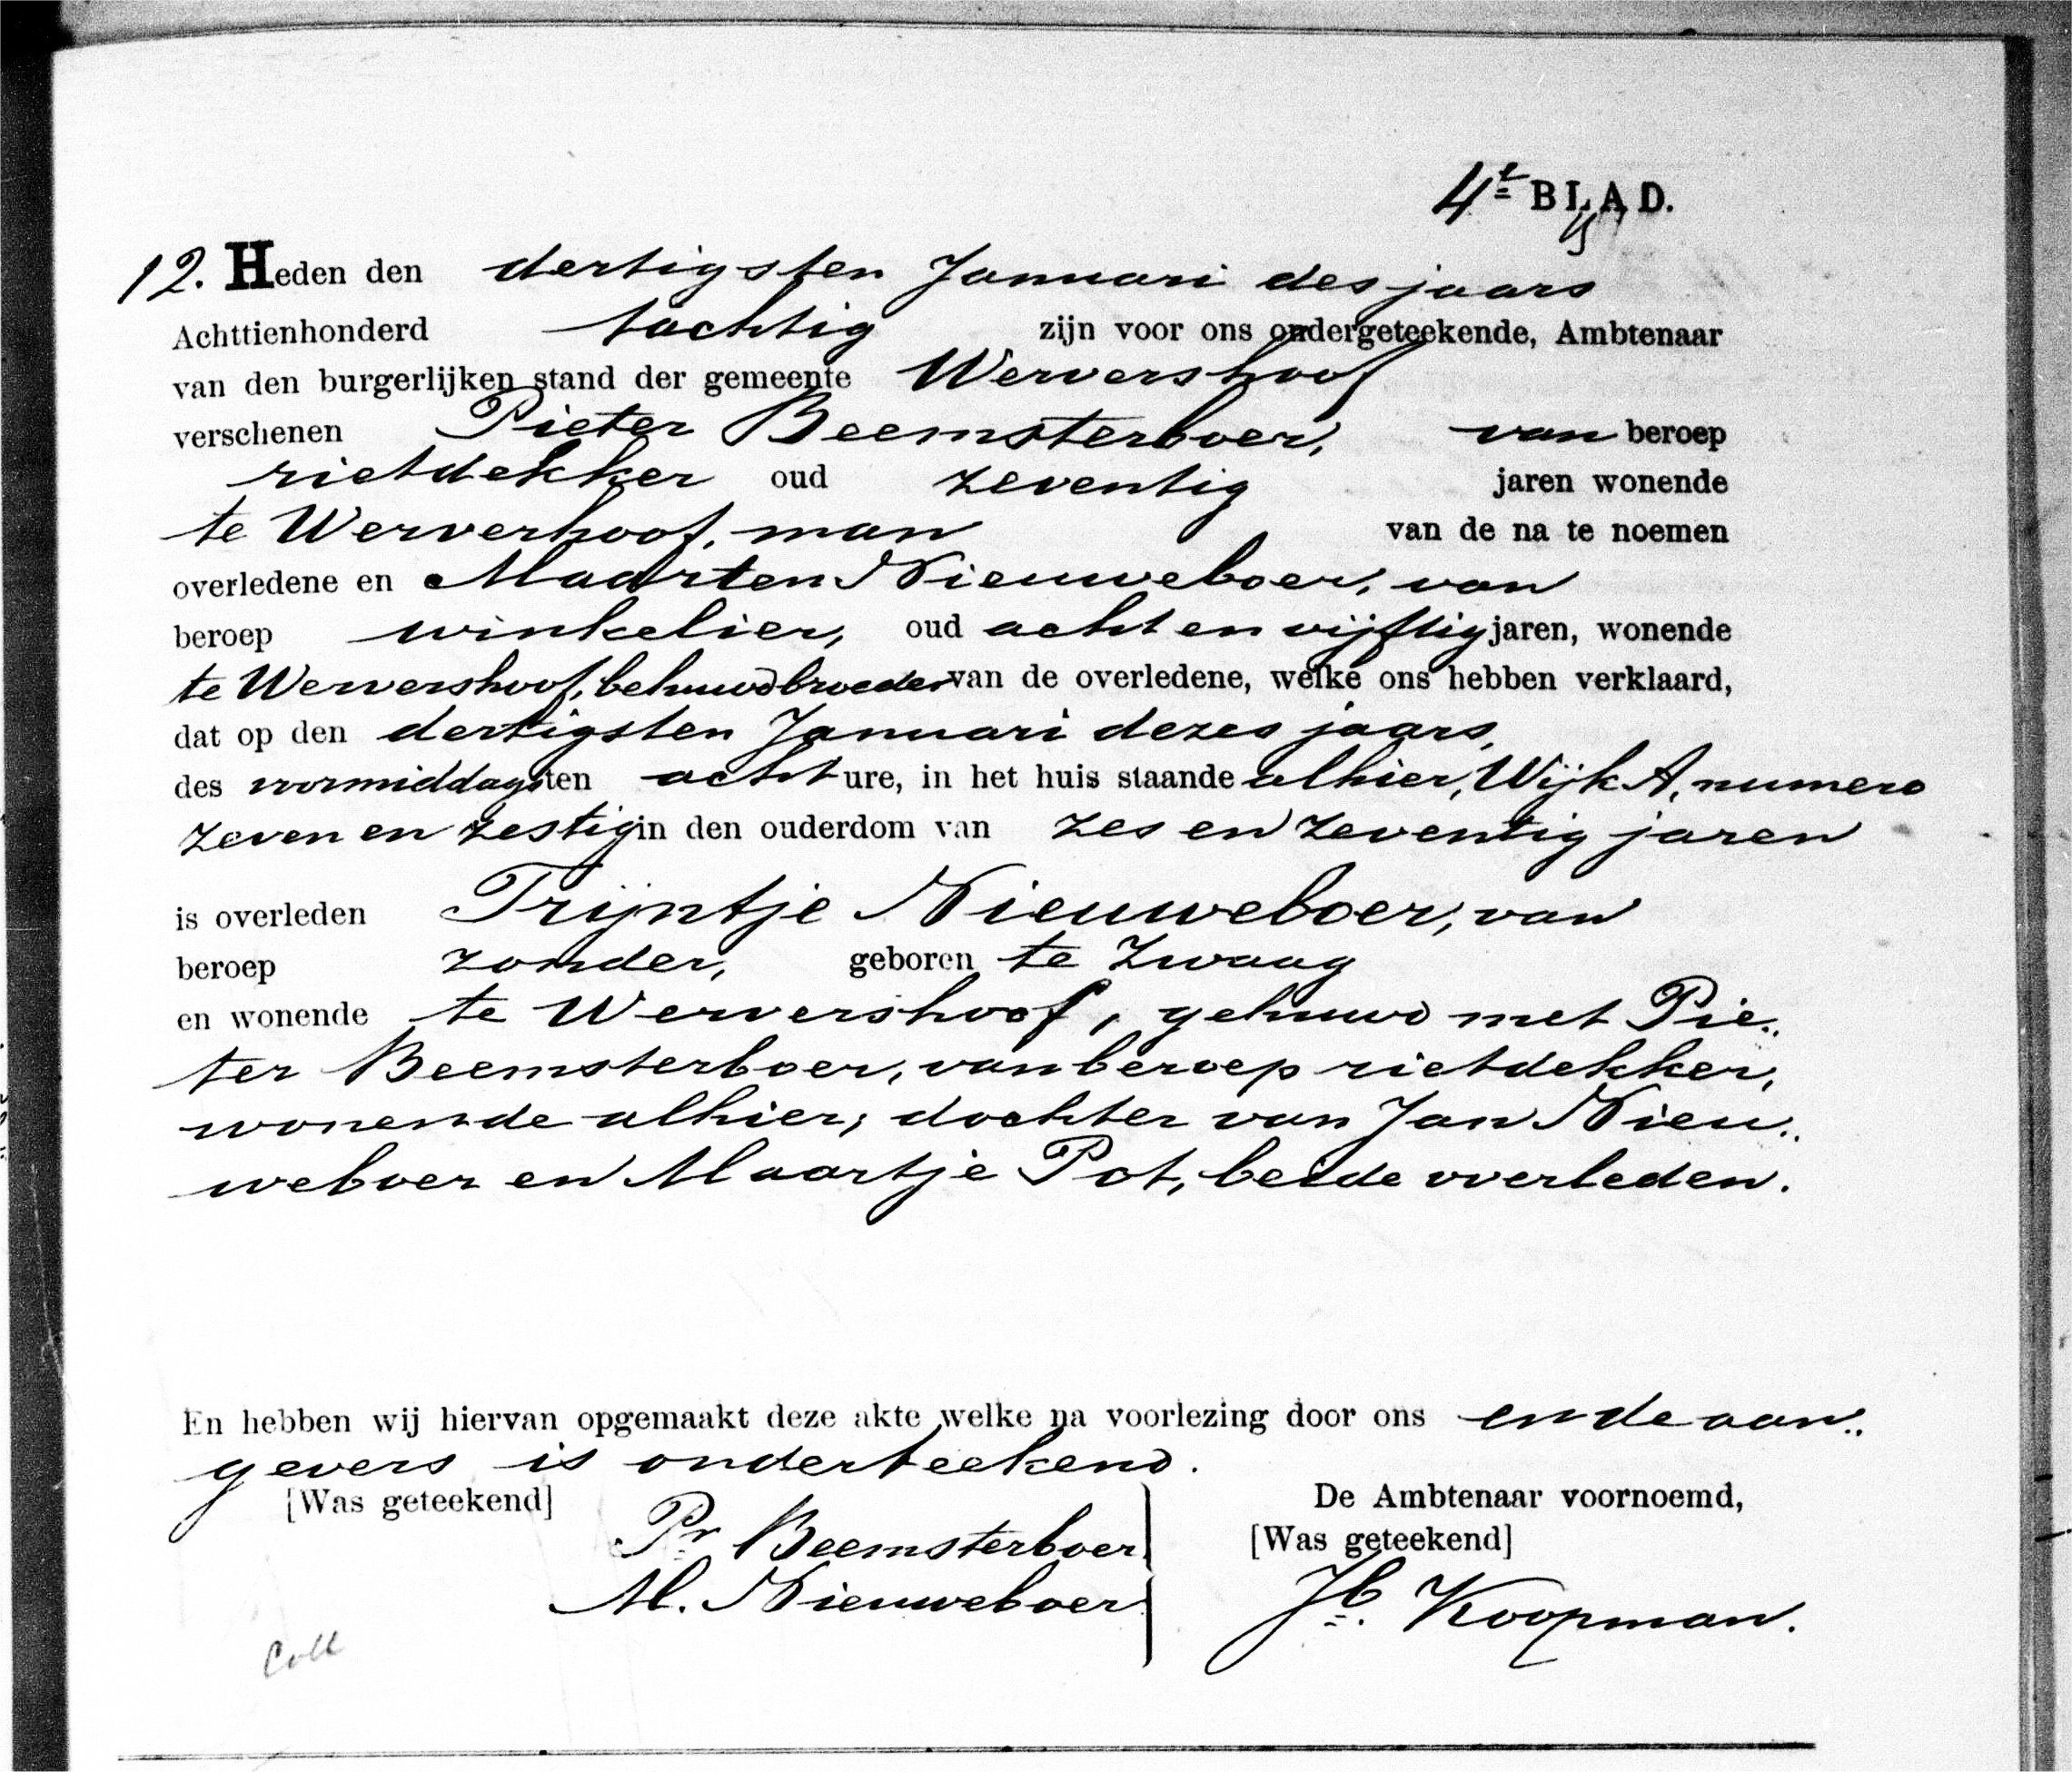 4e BLAD.
12. Heden den dertigsten Januari des jaars
Achttienhonderd tachtig zijn voor ons ondergeteekende, Ambtenaar
van den burgerlijken stand der gemeente Wervershoof
verschenen Pieter Beemsterboer, van beroep
rietdekker oud zeventig jaren wonende
te Werverhoof, man van de na te noemen
overledene en Maarten Nieuweboer, van
beroep winkelier, oud acht en vijftig jaren, wonende
te Wervershoof, behuwdbroeder van de overledene, welke ons hebben verklaard,
dat op den dertigsten Januari dezes jaars,
des voormiddags ten acht ure, in het huis staande alhier, Wijk A, numero
zeven en zestig in den ouderdom van zes en zeventig jaren
is overleden Trijntje Nieuweboer, van
beroep zonder, geboren te Zwaag
en wonende te Wervershoof, gehuwd met Pie..
ter Beemsterboer, van beroep rietdekker,
wonende alhier; dochter van Jan Nieu..
weboer en Maartje Pot, beide overleden.
En hebben wij hiervan opgemaakt deze akte welke na voorlezing door ons en de aan..
gevers is onderteekend.
[Was geteekend] De Ambtenaar voornoemd,
Pr Beemsterboer [Was geteekend]
M. Nieuweboer Jb. Koopman.
Coll